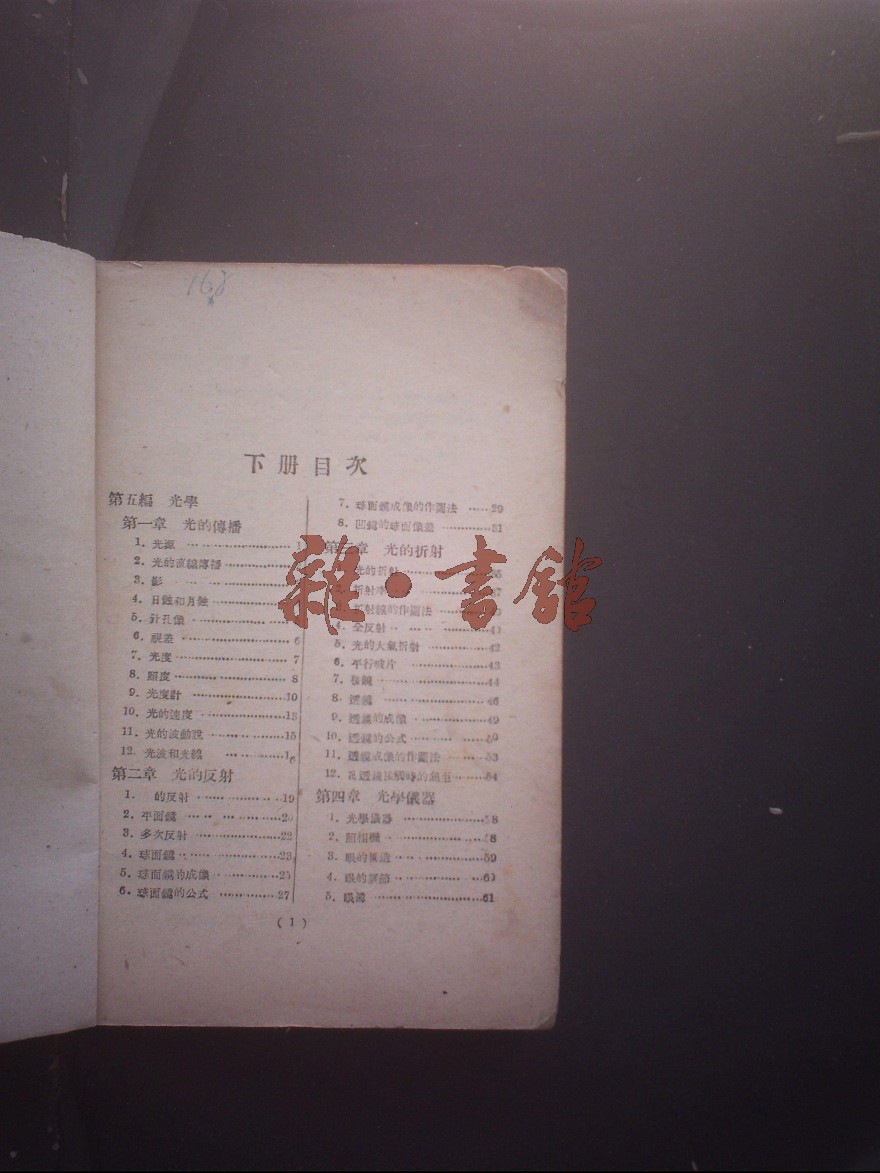 168
下册目次
第五編 光學
第一章 光的傳播
1. 光源
2. 光的直線傳播
3. 影
4. 日蝕和月蝕
5. 針孔像
6. 視差 6
7. 光度 7
8. 照度 8
9. 光度計 10
10. 光的速度 13
11. 光的波動說 15
12. 光波和光線
第二章 光的反射
1. 的反射 19
2. 平面鏡
3. 多次反射 22
4. 球面鏡 23
5. 球面鏡的成像 25
6. 球面鏡的公式 27
7. 球面鏡成像的作圖法 29
8. 凹鏡的球面像差 31
第三章 光的折射
光的折射
折射率
折射線的作圖法
4. 全反射
5. 光的大氣折射 42
6. 平行玻片 43
7. 稜鏡 44
8. 透鏡 46
9. 透鏡的成像 49
10. 透鏡的公式 50
11. 透鏡成像的作圖法 53
12. 54
第四章 光學儀器
1. 光學儀器 58
2. 照相機 58
3. 眼的構造 59
4. 眼的調節 60
5. 眼鏡 61
(1)
雜·書館